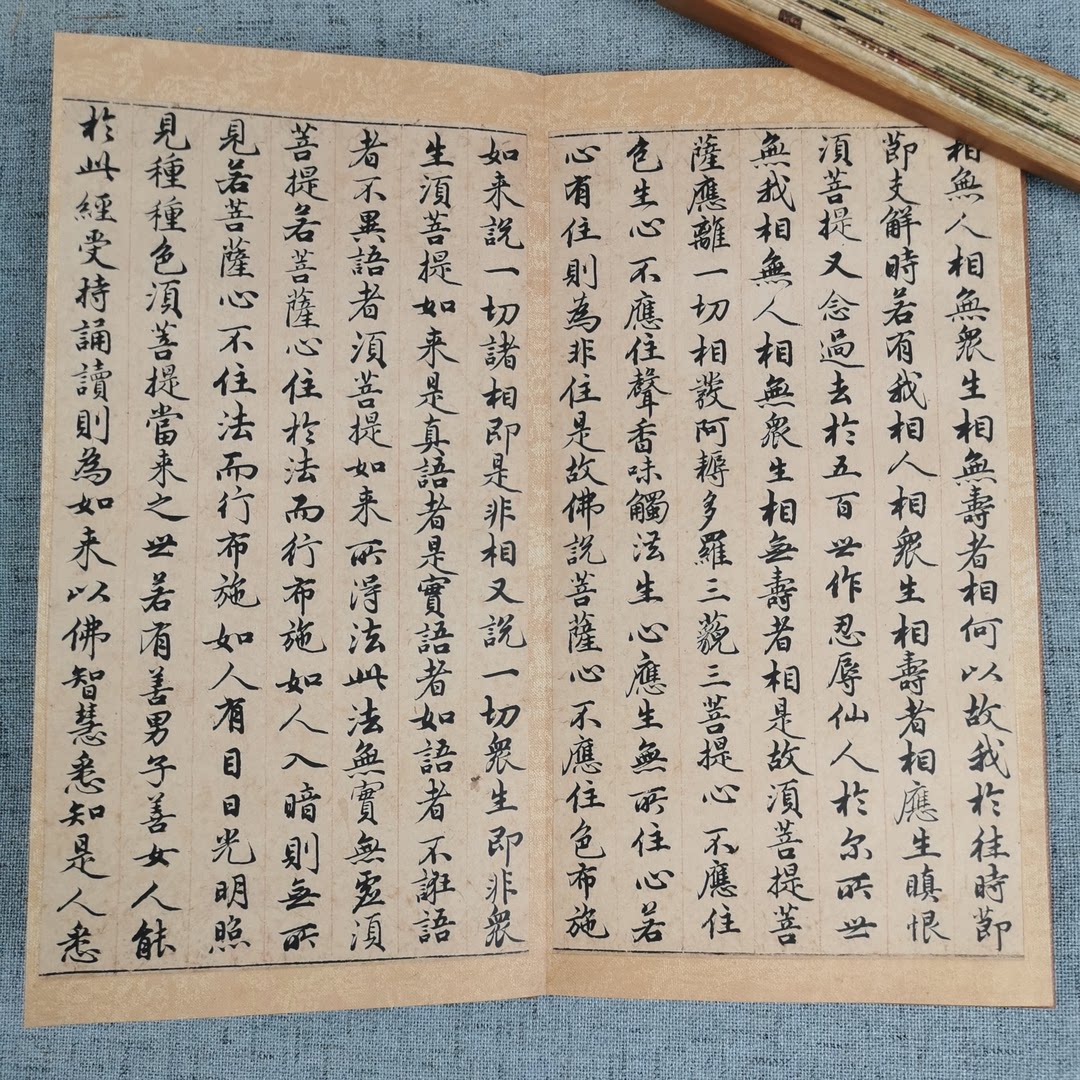 相無人相無眾生相無壽者相何以故我於往時節
節支解時若有我相人相眾生相壽者相應生瞋恨
須菩提又念過去於五百世作忍辱仙人於尔所世
無我相無人相無眾生相無壽者相是故須菩提菩
薩應離一切相發阿耨多羅三藐三菩提心不應住
色生心不應住聲香味觸法生心應生無所住心若
心有住則為非住是故佛說菩薩心不應住色布施
如来說一切諸相即是非相又說一切眾生即非眾
生須菩提如来是真語者是實語者如語者不誑語
者不異語者須菩提如来所得法此法無實無虛須
菩提若菩薩心住於法而行布施如人入暗則無所
見若菩薩心不住法而行布施如人有目日光明照
見種種色須菩提當来之世若有善男子善女人能
於此經受持誦讀則為如来以佛智慧悉知是人悉